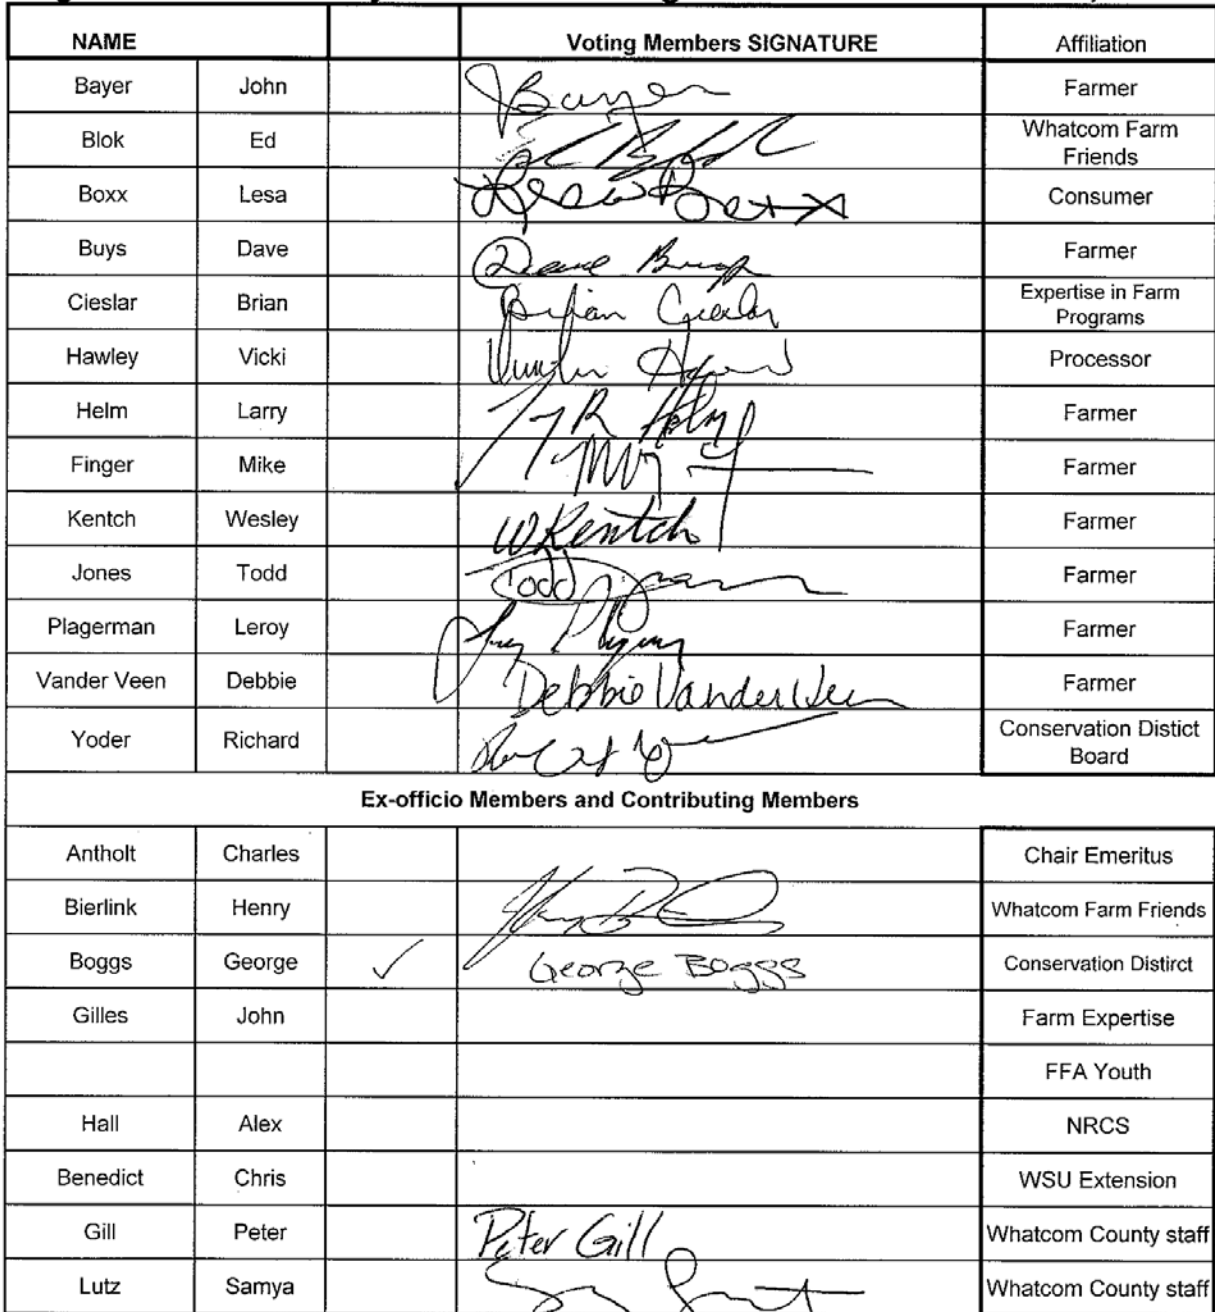 NAME Voting Members SIGNATURE Affiliation
Bayer John Bayer Farmer
Blok Ed Whatcom Farm Friends
Boxx Lesa Lesa Boxx Consumer
Buys Dave Dave Buys Farmer
Cieslar Brian Brian Cieslar Expertise in Farm Programs
Hawley Vicki Processor
Helm Larry Helm Farmer
Finger Mike Farmer
Kentch Wesley W Kentch Farmer
Jones Todd Todd Farmer
Plagerman Leroy Farmer
Vander Veen Debbie Debbie VanderVeen Farmer
Yoder Richard Conservation Distict Board
Ex-officio Members and Contributing Members
Antholt Charles Chair Emeritus
Bierlink Henry Whatcom Farm Friends
Boggs George ✓ George Boggs Conservation Distirct
Gilles John Farm Expertise
FFA Youth
Hall Alex NRCS
Benedict Chris WSU Extension
Gill Peter Peter Gill Whatcom County staff
Lutz Samya Whatcom County staff